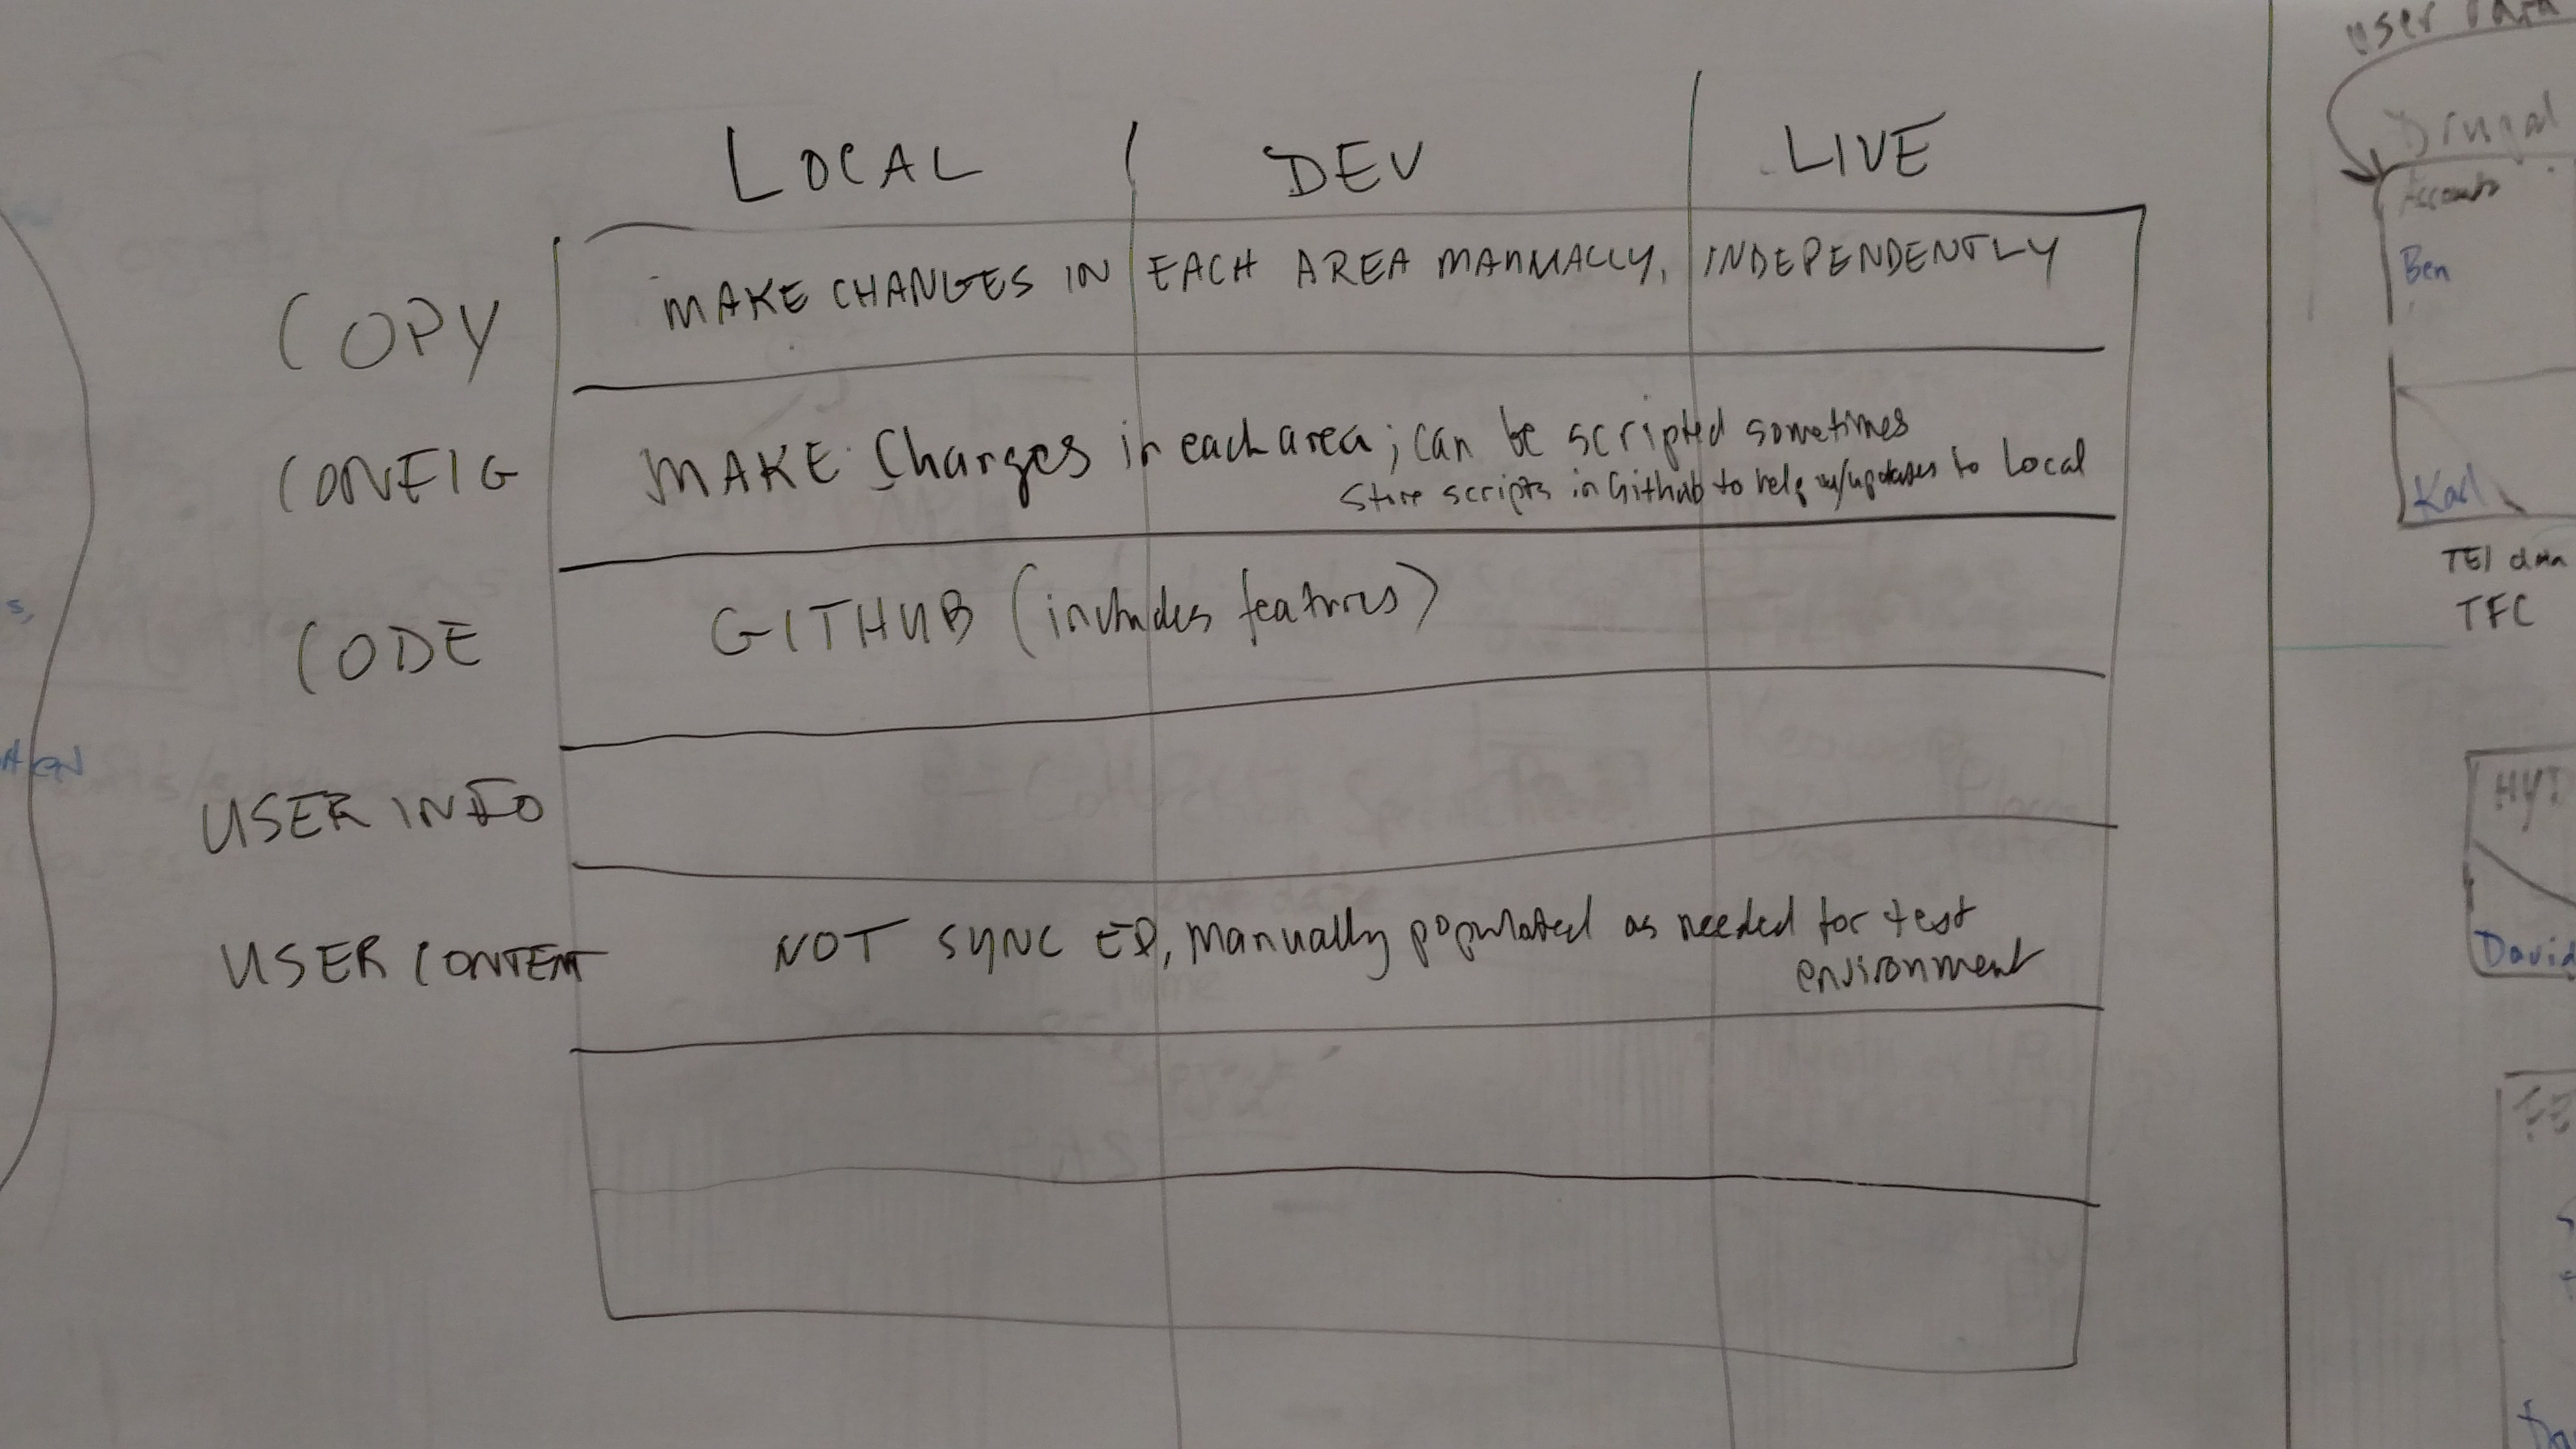 LOCAL DEV LIVE
COPY MAKE CHANGES IN EACH AREA MANUALLY, INDEPENDENTLY
CONFIG MAKE Changes in each area; can be scripted sometimes
Store scripts in Github to help w/updates to Local
CODE GITHUB (includes features)
USER INFO
USER CONTENT NOT SYNCED, manually populated as needed for test
environment
user data
Drupal
Accounts
Ben
Karl
TEI data
TFC
HYI
David